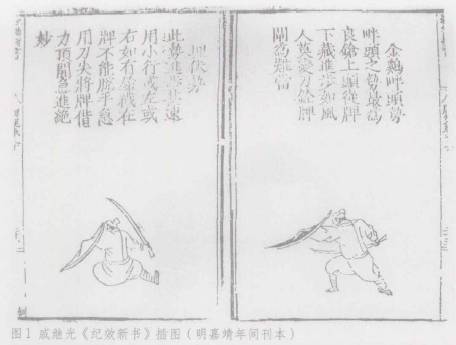 金鷄畔頭勢
畔頭之勢最為
良鎗上頭從牌
下藏進步如風
人 刀 牌
開為難當
伏勢
此勢進 速
用小行或左或
右如有鎗 在
牌不能脫手急
用刀尖將牌借
力頂開急進絶
妙
图1 戚继光《纪效新书》插图(明嘉靖年间刊本)